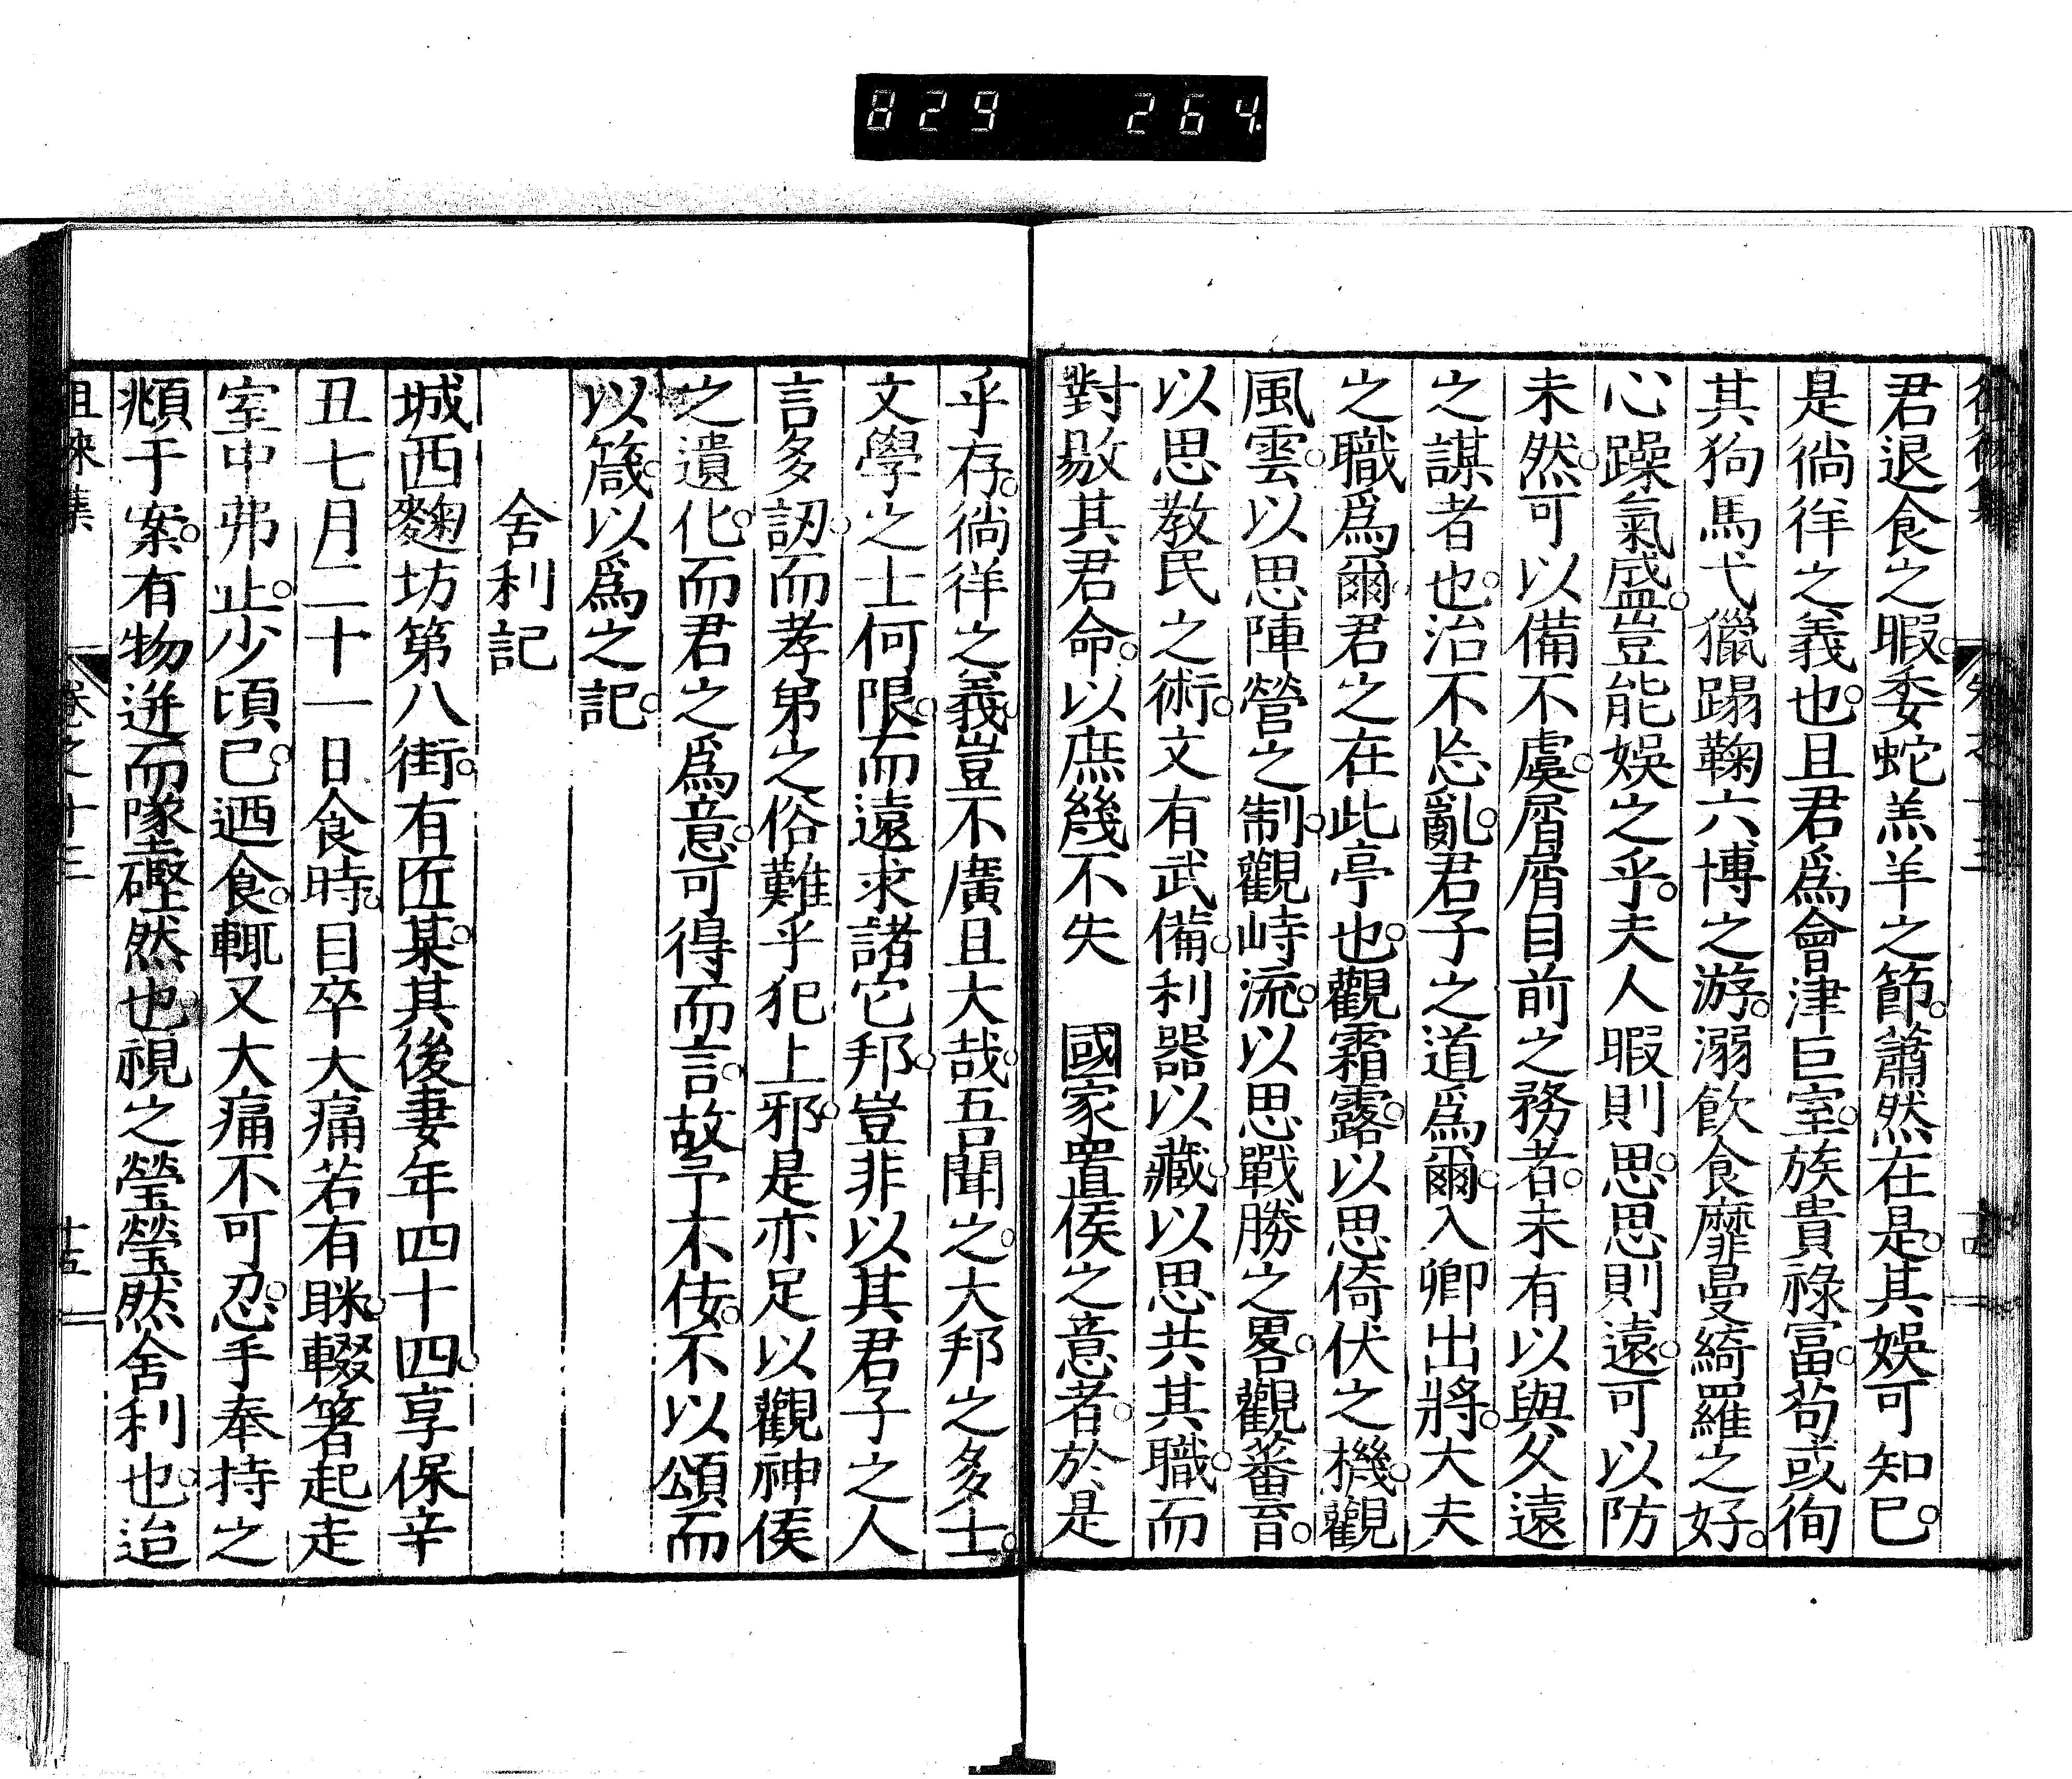 829 264
君退食之暇。委蛇羔羊之節。蕭然在是。其娛可知已。
是徜徉之義也。且君爲會津巨室。族貴祿富。苟或徇
其狗馬弋獵蹋鞠六博之游。溺飮食靡曼綺羅之好。
心躁氣盛。豈能娛之乎。夫人暇則思。思則遠。可以防
未然。可以備不虞。屑屑目前之務者。未有以與久遠
之謀者也。治不忘亂。君子之道爲爾。入卿出將。大夫
之職爲爾。君之在此亭也。觀霜露。以思倚伏之機。觀
風雲。以思陣營之制。觀峙流。以思戰勝之畧。觀蓄育。
以思敎民之術。文有武備。利器以藏。以思共其職。而
對敭其君命。以庶幾不失　國家置侯之意者。於是
乎存。徜徉之義。豈不廣且大哉。吾聞之。大邦之多士。
文學之士何限。而遠求諸它邦。豈非以其君子之人
言多訒。而孝弟之俗難乎犯上邪。是亦足以觀神侯
之遺化。而君之爲意。可得而言。故予不佞。不以頌而
以箴。以爲之記。
舍利記
城西麴坊第八街。有匠某。其後妻年四十四。享保辛
丑七月二十一日食時。目卒大痛若有眯。輟箸起走
室中弗止。少頃已。迺食。輒又大痛不可忍。手奉持之
頫于案。有物迸而墜。硜然也。視之瑩瑩然舍利也。迨
徂徠集　卷之十三　十五